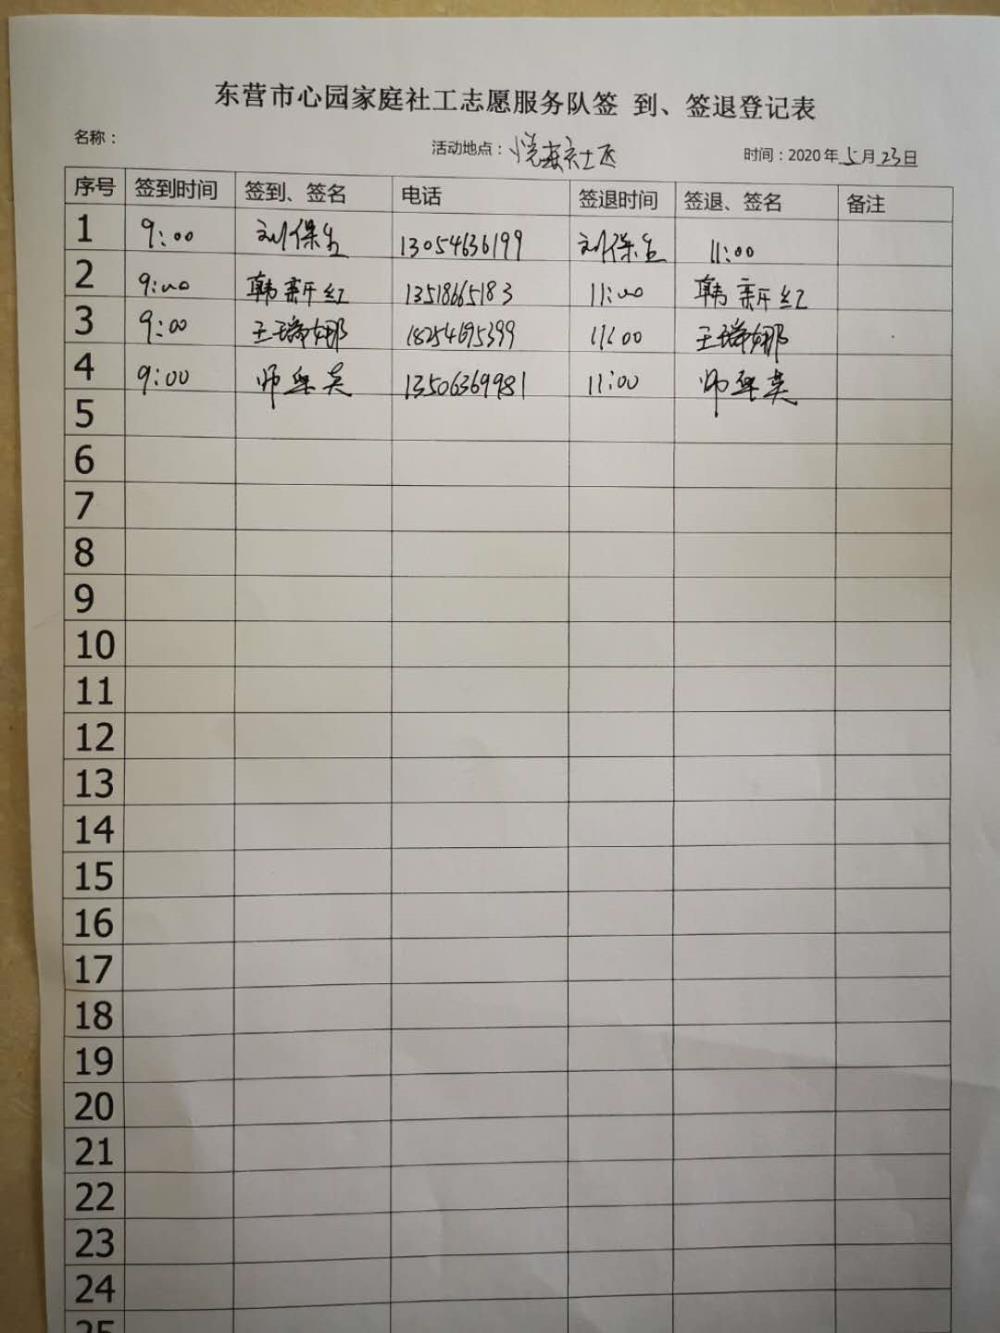 东营市心园家庭社工志愿服务队签 到、签退登记表
名称： 活动地点：悦来社区 时间：2020年5月23日
序号 签到时间 签到、签名 电话 签退时间 签退、签名 备注
1 9:00 刘保生 13054636199 刘保生 11:00
2 9:00 韩新红 13518665183 11:00 韩新红
3 9:00 王瑞娜 18254695399 11:00 王瑞娜
4 9:00 师 英 13506369981 11:00 师 英
5
6
7
8
9
10
11
12
13
14
15
16
17
18
19
20
21
22
23
24
25